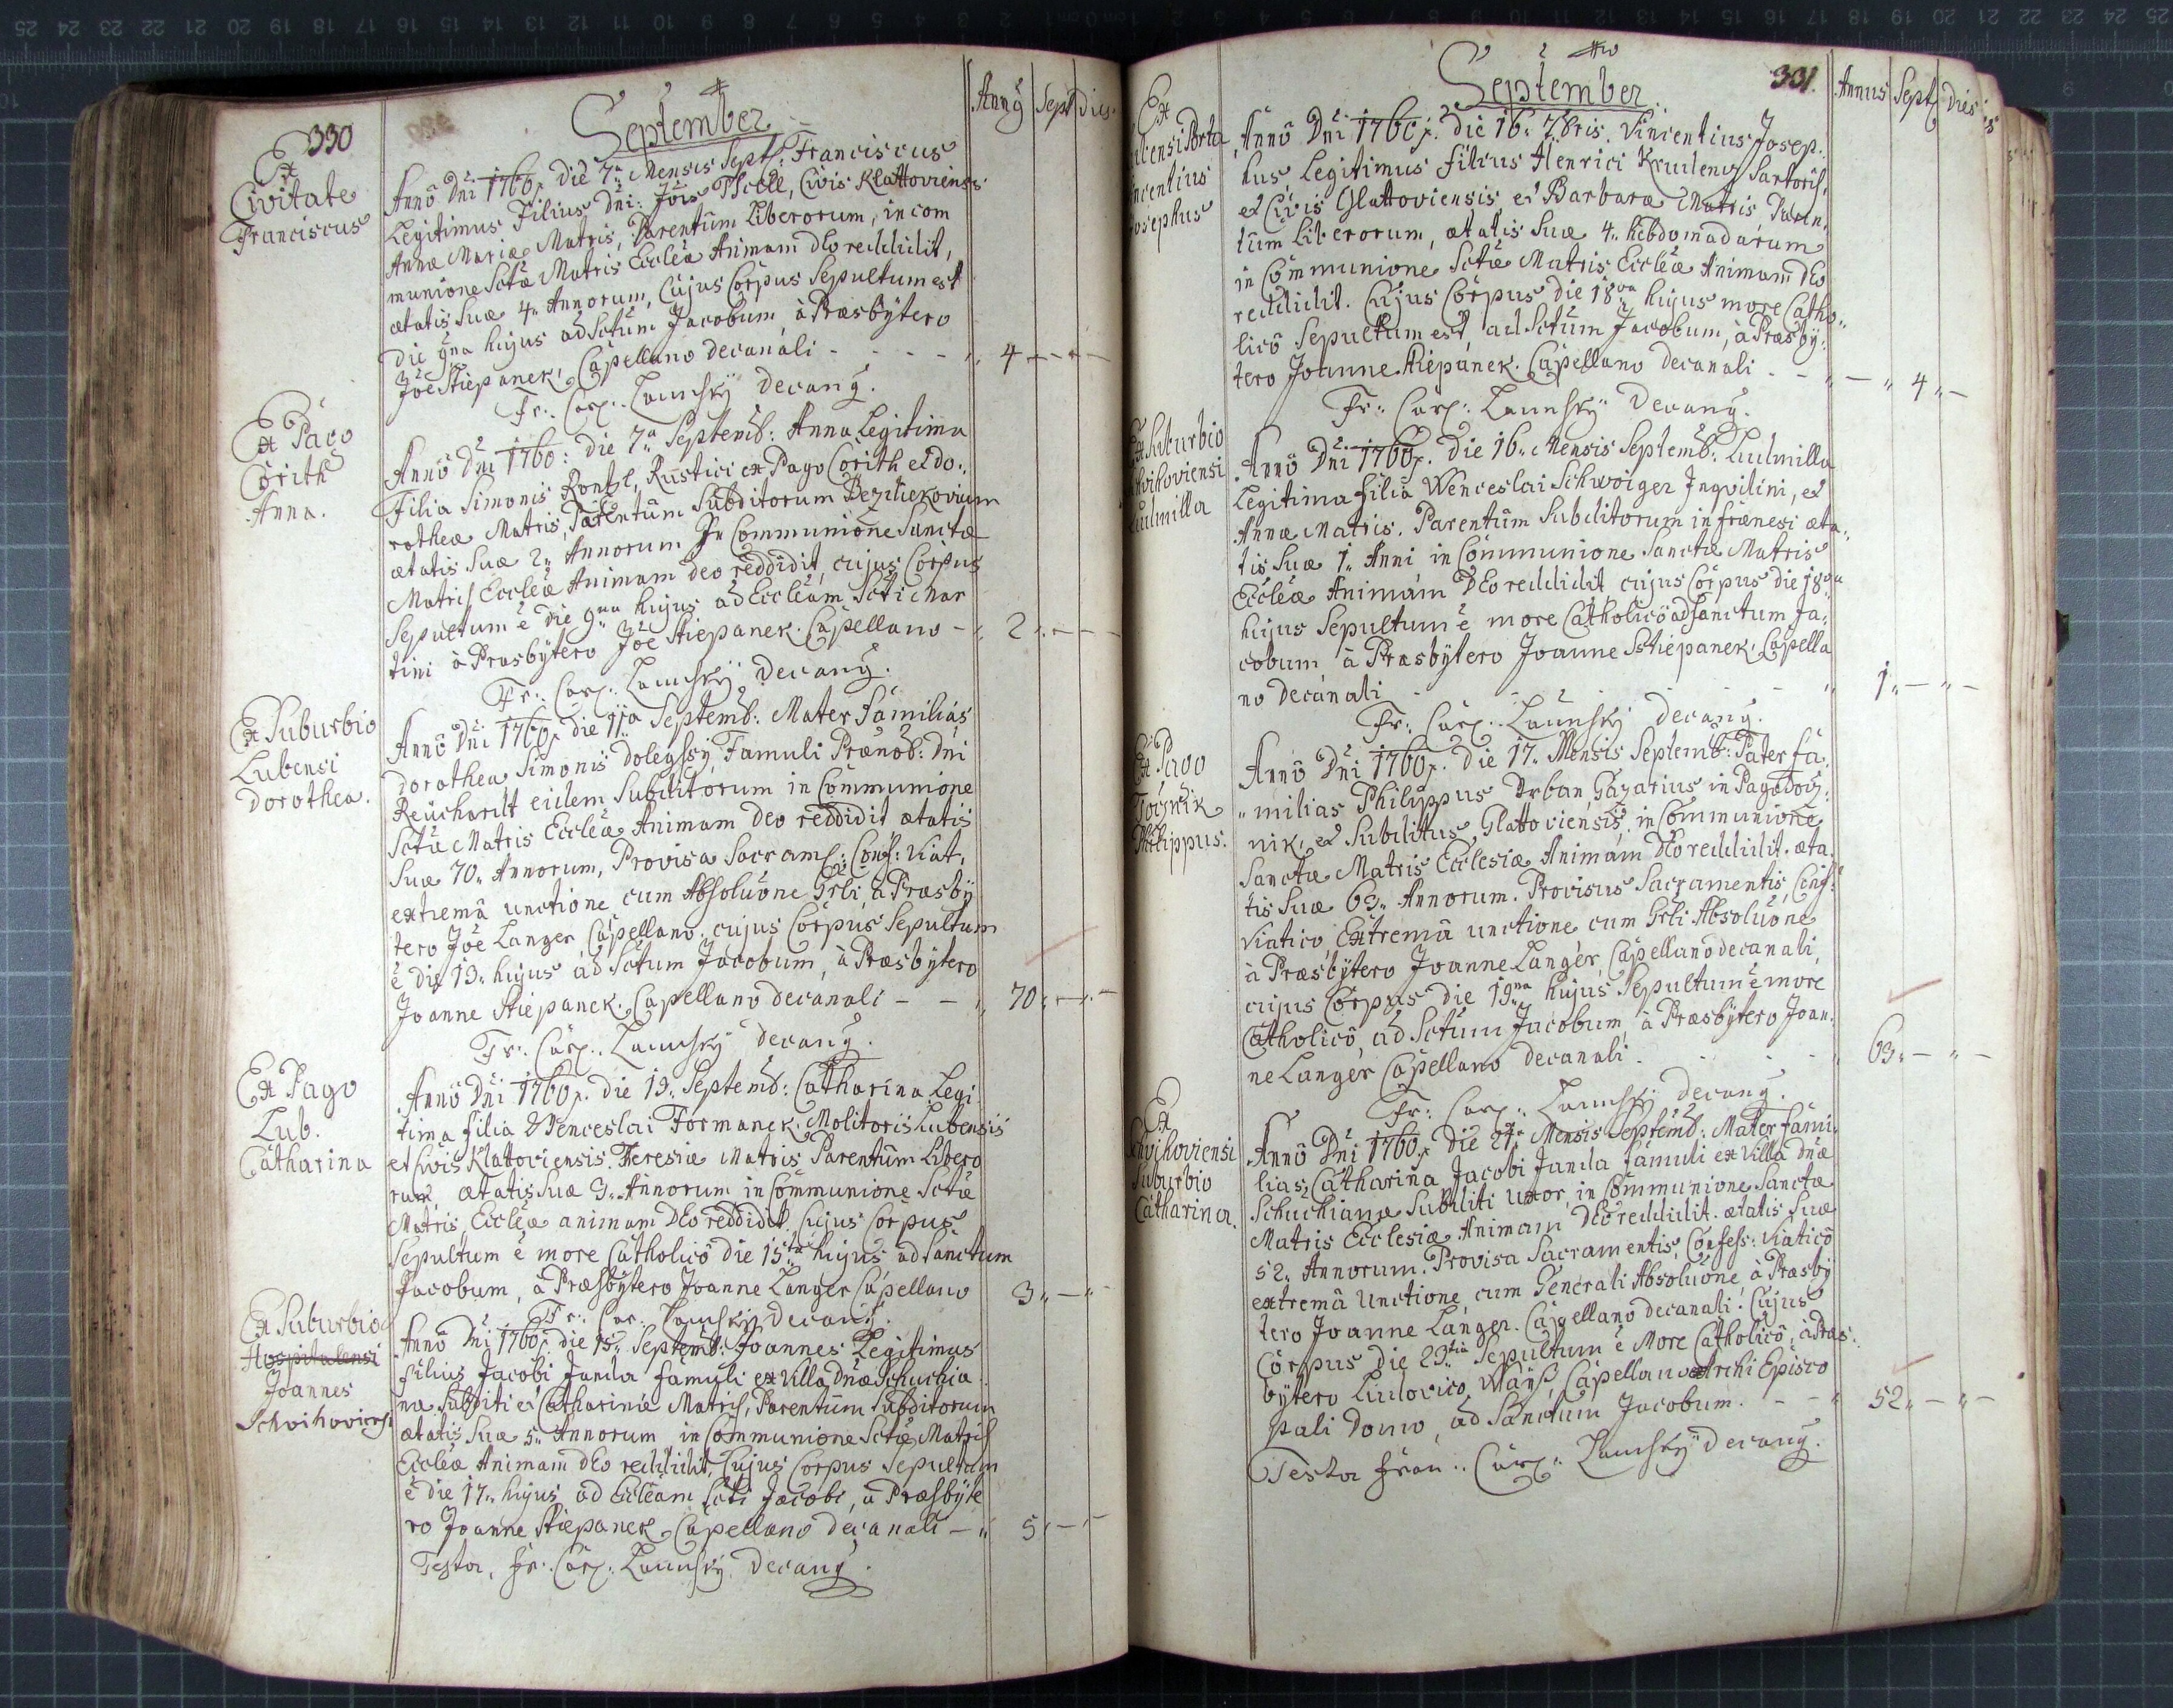 330
September
Annȳ Sept dies
Ex
Civitate
Franciscus
Annô Dñi 1760. die 7ª Mensis Sept: Franciscus
Legitimus Filius Dñi: Jois Civis Klattoviensis
Annæ Mariæ Matris, Parentum Liberorum, in com
munione Sctæ Matris Eccleæ Animam DEo reddidit,
ætatis suæ 4. Annorum, Cujus Corpus Sepultum est
die 9na hujus ad Sctum Jacobum à Præsbytero
Jôe Stiepanek, Capellano decanali - - - - 4 - -
Fr: Carl: Launsky Decanȳ.
Ex Pago
Corith
Anna.
Annô Dñi 1760: die 7ª Septemb: Anna Legitima
Filia Simonis Rontzl, Rustici ex Pago Corith et do:
rotheæ Matris, Parentum Subditorum Bezdiekovium
ætatis suæ 2. Annorum In Communione Sanctæ
Matris Eccleæ Animam Deo reddidit, cujus Corpus
Sepultum ê die 9na hujus ad Eccleam Scti Mar
tini à Præsbytero Jôe Stiepanek. Capellano - 2 - -
Fr: Carl: Launsky Decanȳ.
Ex Suburbio
Lubensi
Dorothea.
Annô Dñi 1760. die 11ª Septemb: Mater Familiás
Dorothea Simonis Doleyssy, Famuli Prænob: Dni
Reüchardt eidem Subditorum in Communione
Sctæ Matris Eccleæ Animam Deo reddidit ætatis
Suæ 70. Annorum, Provisa Sacram: Conf: Viat,
extremâ unctione cum Absoluõne Grli, à Præsby
tero Jôe Langer Capellano. cujus Corpus Sepultum
ê die 13. hujus ad Sctum Jacobum, à Præsbytero
Joanne Stiepanek. Capellano decanali - - 70. - -
Fr: Carl: Launsky Decanȳ.
Ex Pago
Lub.
Catharina
Annô Dñi 1760. die 13. Septemb: Catharina Legi
tima filia Wenceslai Formanek. Molitoris Lubensis
et Civis Klattoviensis. Teresiæ Matris Parentum Libero
rum, ætatis suæ 3. Annorum in Communione Sctæ
Matris Eccleæ animam DEo reddidit, Cujus Corpus
Sepultum ê more Catholicô die 15ta hujus ad Sanctum
Jacobum, à Præsbytero Joanne Langer Capellano 3. - -
Fr: Car: Launsky Decanȳ.
Ex Suburbio
Hospitalensi
Joannes
Schwihoviensi
Annô Dñi 1760. die 15. Septemb: Joannes Legitimus
filius Jacobi Janda famuli ex Villa Dnæ Schuchia
na Subditi et Catharinæ Matris, Parentum Subditorum
ætatis Suæ 5. Annorum in Communione Sctæ Matris
Eccleæ Animam DEo reddidit, Cujus Corpus Sepultum
ê die 17. hujus ad Eccleam Scti Jacobi, à Præsbyte
ro Joanne Stiepanek. Capellano decanali - 5. - -
Testor, Fr: Carl: Launsky, Decanȳ.
September
331.
Annus Sept Dies
Ex
Vincentius
Josephus
Annô Dñi 1760. die 16. 7bris. Vincentius Josep:
hus, Legitimus filius Henrici Sartoris,
et Civis Glattoviensis et Barbaræ Matris, Paren:
tum Liberorum, ætatis Suæ 4. hebdomadarum
in Communione Sctæ Matris Eccleæ Animam DEo
reddidit. Cujus Corpus die 18va hujus more Catho:
licô Sepultum est, ad Sctum Jacobum, à Præsby:
tero Joanne Stiepanek. Capellano decanali - - - 4. -
Fr: Carl: Launsky Decanȳ.
Ex Suburbio
Schwihoviensi
Ludmilla
Annô Dñi 1760. die 16. Mensis Septemb: Ludmilla
Legitima filia Wenceslai Schwoiger Inqvilini, et
Annæ Matris. Parentum Subditorum in frænesi æta:
tis Suæ 1. Anni in Communione Sanctæ Matris
Eccleæ Animam DEo reddidit cujus Corpus die 18va
hujus Sepultum ê more Catholicô ad Sanctum Ja:
cobum à Præsbytero Joanne Stiepanek, Capella
no Decanali - - - - 1. - -
Fr: Carl: Launsky Decanȳ.
Ex Pago
Philippus.
Annô Dñi 1760. die 17. Mensis Septemb: Pater fa:
milias Philippus Urban, Gazarius in Pago
nik, et Subditus Glattoviensis, in Communione
Sanctæ Matris Ecclesiæ Animam DEo reddidit. æta:
tis Suæ 63. Annorum. Provisus Sacramentis, Conf:
Viatico, Extremâ unctione cum Grli Absoluõne
à Præsbytero Joanne Langer, Capellano decanali,
cujus Corpus die 19na hujus Sepultum ê more
Catholicô, ad Sctum Jacobum, à Præsbytero Joan:
ne Langer Capellano decanali - - - 63. - -
Fr: Carl: Launsky Decanȳ.
Ex
Schwihoviensi
Suburbio
Catharina.
Annô Dñi 1760. die 21. Mensis Septemb: Mater fami:
lias, Catharina Jacobi Janda famuli ex Villa Dnæ
Schuchiana Subditi uxor, in Communione Sanctæ
Matris Ecclesiæ Animam DEo reddidit. ætatis suæ
52. Annorum. Provisa Sacramentis, Confess: Viaticô
extremâ Unctione, cum Generali Absoluõne, à Præsby
tero Joanne Langer. Capellano decanali. Cujus
Corpus die 23tia Sepultum ê More Catholicô, à Præs:
bytero Ludovico Capellano Archi Episco
pali Domo, ad Sanctum Jacobum. - - 52. - -
Testor Fran: Carl: Launsky Decanȳ.